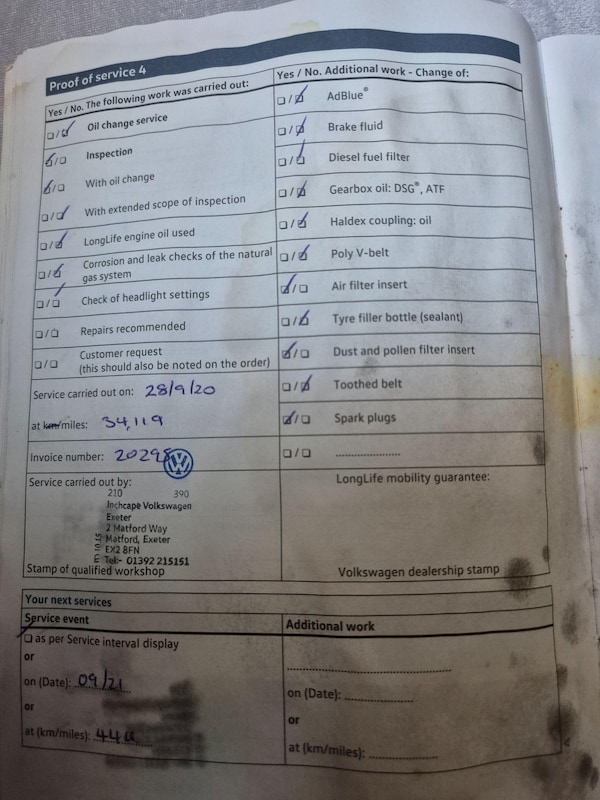 Proof of service 4
Yes / No. The following work was carried out:
Oil change service
Inspection
With oil change
With extended scope of inspection
LongLife engine oil used
Corrosion and leak checks of the natural
gas system
Check of headlight settings
Repairs recommended
Customer request
(this should also be noted on the order)
Service carried out on: 28/9/20
at km/miles: 34,119
Invoice number: 20295
Service carried out by:
210 390
Inchcape Volkswagen
Exeter
2 Matford Way
Matford, Exeter
EX2 8FN
Tel:- 01392 215151
Stamp of qualified workshop
Yes / No. Additional work - Change of:
AdBlue®
Brake fluid
Diesel fuel filter
Gearbox oil: DSG®, ATF
Haldex coupling: oil
Poly V-belt
Air filter insert
Tyre filler bottle (sealant)
Dust and pollen filter insert
Toothed belt
Spark plugs
LongLife mobility guarantee:
Volkswagen dealership stamp
Your next services
Service event
as per Service interval display
or
on (Date): 09/21
or
at (km/miles):
Additional work
on (Date):
or
at (km/miles):